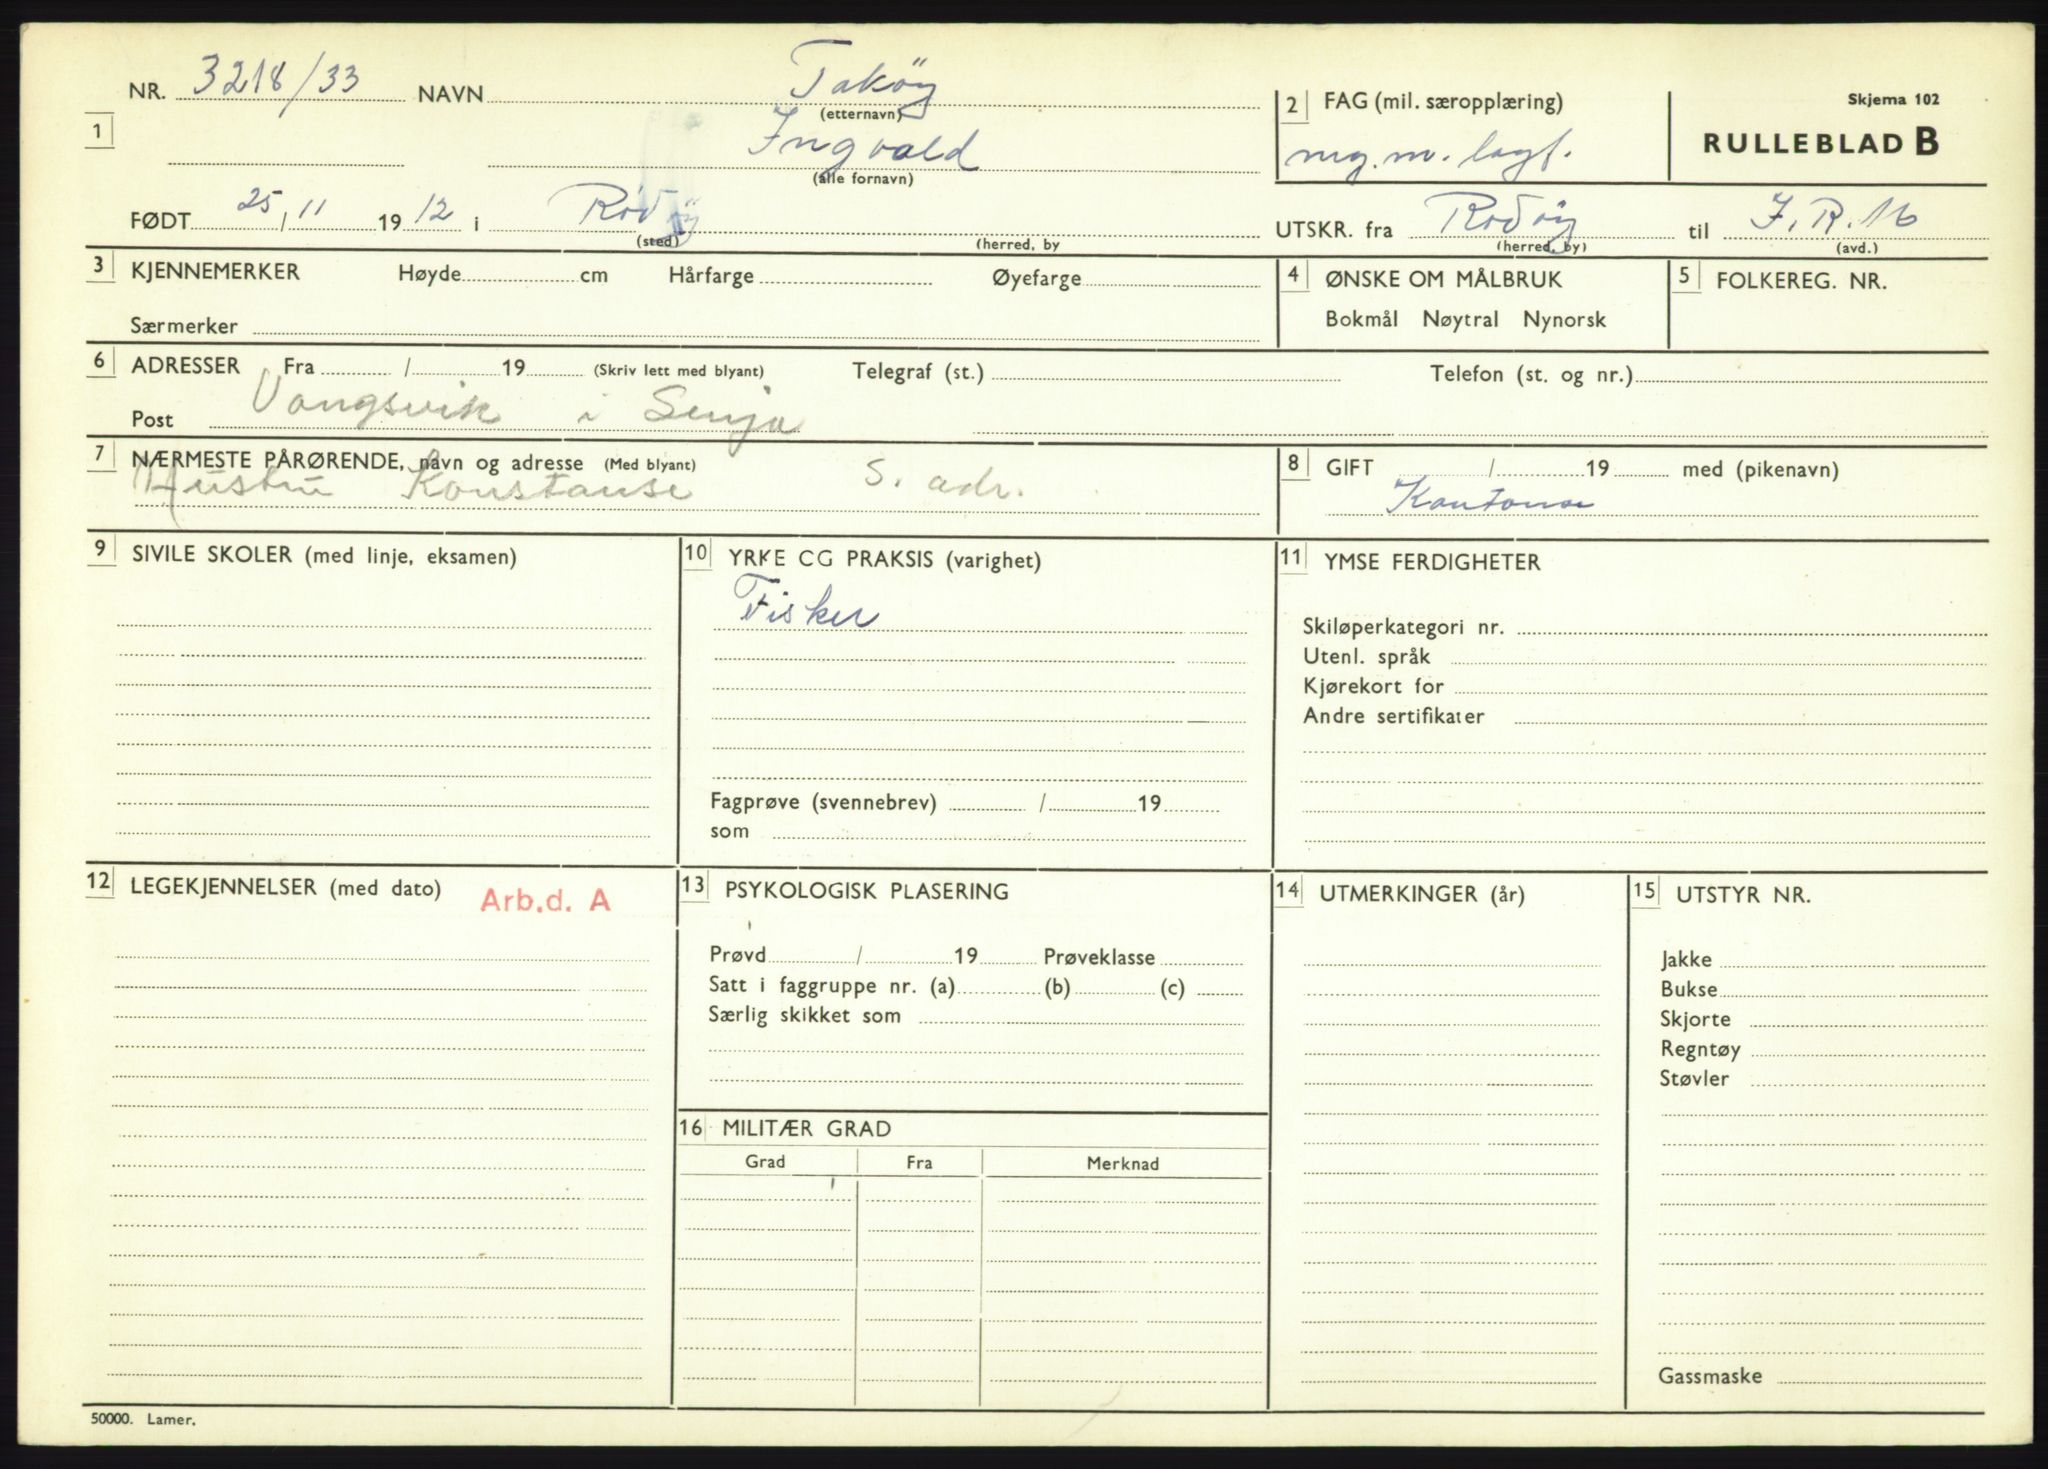 NR. 3218/33 NAVN Taköy
(etternavn)
Skjema 102
1
Ingvald
(alle fornavn)
2 FAG (mil. særopplæring)
mg. m. lagf.
RULLEBLAD B
FØDT 25/11 1912 i Rödöy
(sted) (herred, by
UTSKR. fra Rödöy til I.R. 16
(herred, by) (avd.)
3 KJENNEMERKER Høyde cm Hårfarge Øyefarge
Særmerker
4 ØNSKE OM MÅLBRUK
Bokmål Nøytral Nynorsk
5 FOLKEREG. NR.
6 ADRESSER Fra / 19 (Skriv lett med blyant) Telegraf (st.) Telefon (st. og nr.)
Post Vangsvik i Senja
7 NÆRMESTE PÅRØRENDE, navn og adresse (Med blyant)
Hustru Konstanse s. adr.
8 GIFT / 19 med (pikenavn)
9 SIVILE SKOLER (med linje, eksamen)
10 YRKE CG PRAKSIS (varighet)
Fisker
Fagprøve (svennebrev) / 19
som
11 YMSE FERDIGHETER
Skiløperkategori nr.
Utenl. språk
Kjørekort for
Andre sertifikater
12 LEGEKJENNELSER (med dato) Arb.d. A
13 PSYKOLOGISK PLASERING
Prøvd / 19 Prøveklasse
Satt i faggruppe nr. (a) (b) (c)
Særlig skikket som
14 UTMERKINGER (år)
15 UTSTYR NR.
Jakke
Bukse
Skjorte
Regntøy
Støvler
Gassmaske
16 MILITÆR GRAD
Grad Fra Merknad
50000. Lamer.